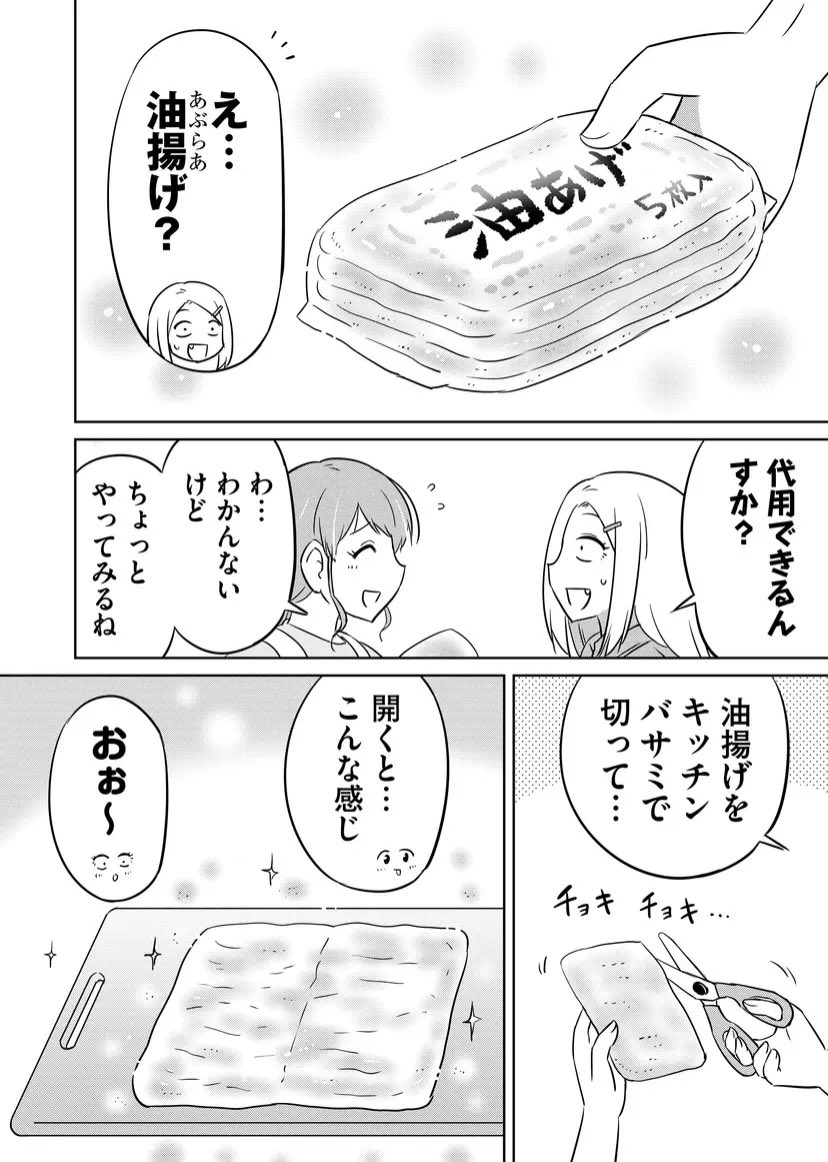 え…
油揚げ?
あぶらあ
油あげ
5枚入
代用できるん
すか?
わ…
わかんない
けど
ちょっと
やってみるね
油揚げを
キッチン
バサミで
切って…
チョキ チョキ…
開くと…
こんな感じ
おぉ〜